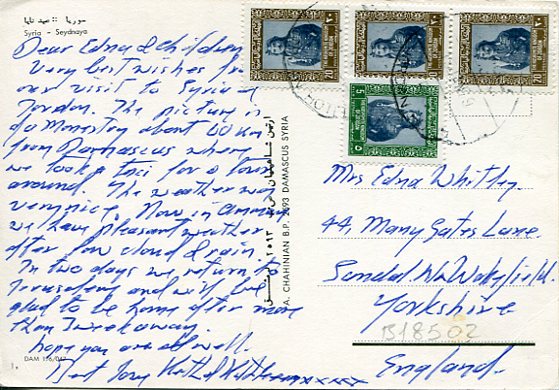 سوريا - صيدنايا
Syria - Seydnaya
Dear Edna & children
Very best wishes from
our visit to Syria &
Jordan. The picture is
of Monastry about 60 km
from Damascus where
we took a taxi for a tour
around. The weather was
very nice. Now in Amman
we have pleasant weather
after low cloud & rain.
In two days we return to
Jerusalem and will be
glad to be home after more
than 3 weeks away.
hope you are all well.
Best love
DAM 116/047
A. CHAHINIAN B.P. 2693 DAMASCUS SYRIA
20
20
20
THE HASHEMITE KINGDOM
OF JORDAN
5
Mrs Edna Whitley
44, Many Gates Lane.
Sandal Nr Wakefield.
Yorkshire
B18502
England.